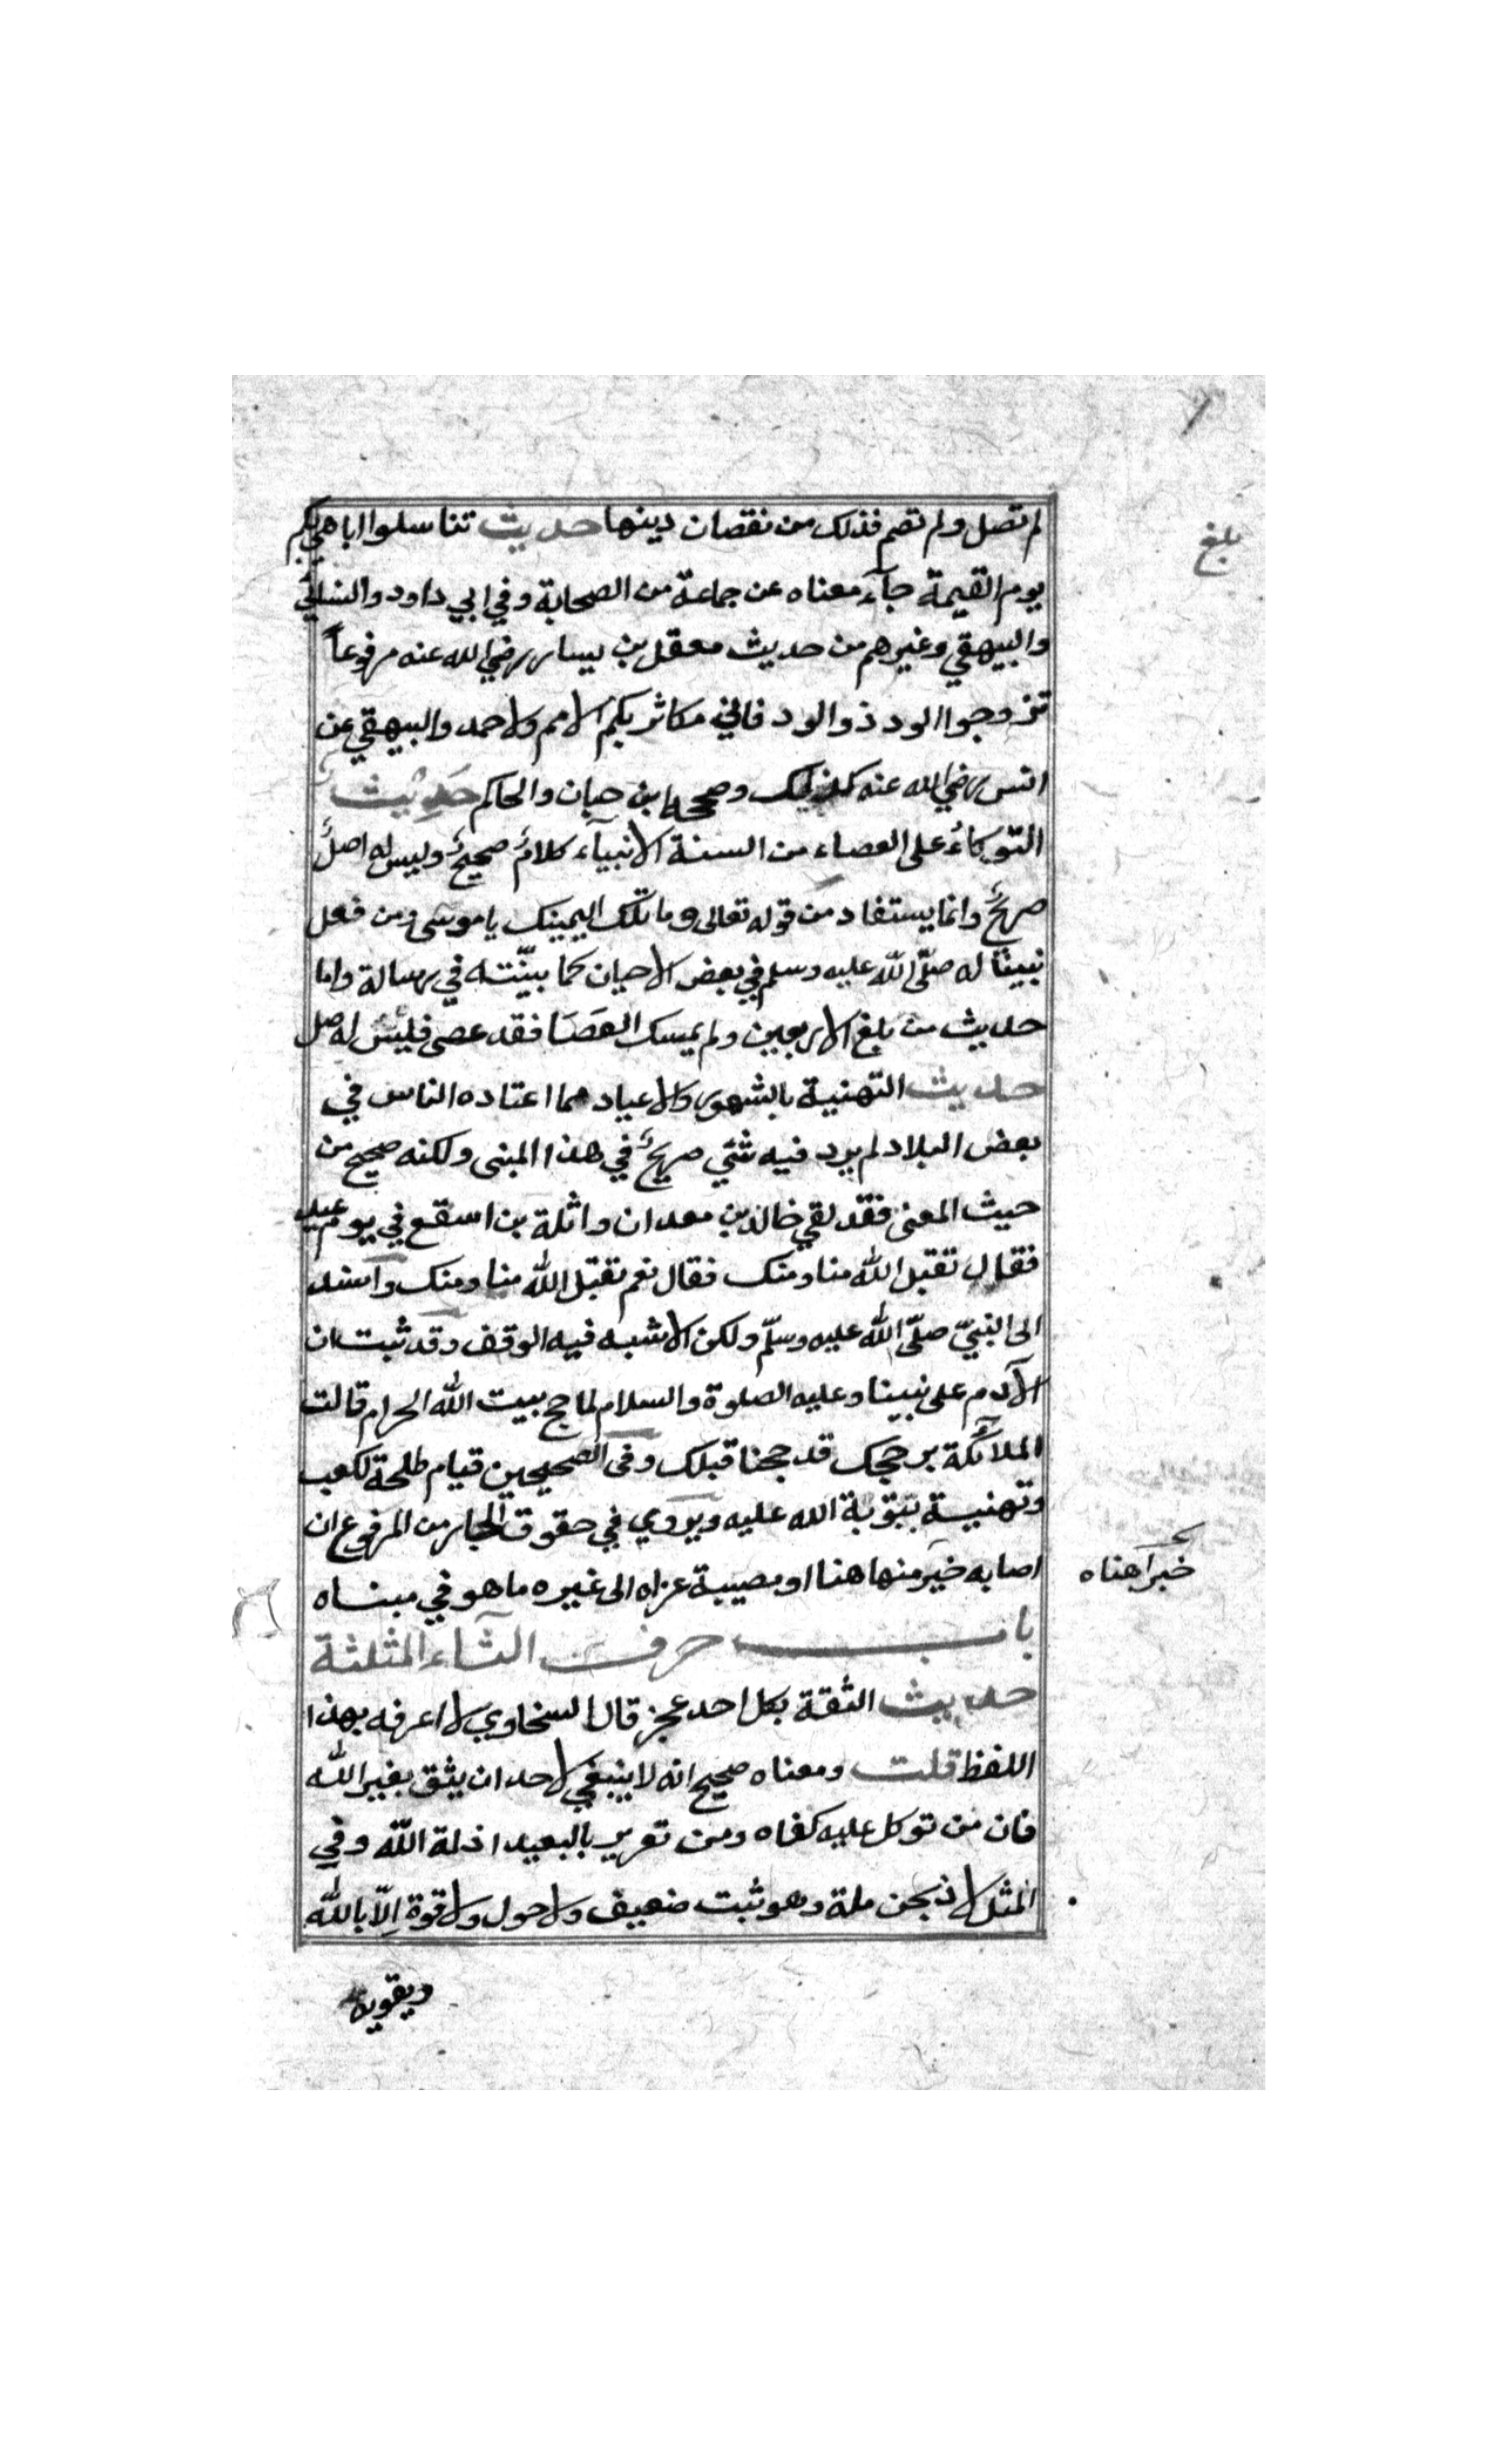 لم تصل ولم تصم فذلك من نقصان دينها حديث تناسلوا اباهي بكم
بلغ
يوم القيمة جآء معناه عن جماعة من الصحابة وفي ابي داود والنسائي
والبيهقي وغيرهم من حديث معقل بن يسار رضي الله عنه مرفوعاً
تزوجوا الودود الولود فاني مكاثر بكم الامم ولاحمد والبيهقي عن
انس رضي الله عنه كذلك وصححه ابن حبان والحاكم حديث
التوكاء على العصاء من السنة الانبيآء كلام صحيح وليس له اصل
صريح وانما يستفاد من قوله تعالى وما تلك اليمينك يا موسى ومن فعل
نبينا له صلّى اللّه عليه وسلم في بعض الاحيان كما بيّنته في رسالة واما
حديث من بلغ الاربعين ولم يمسك العصا فقد عصى فليس له اصل
حديث التهنية بالشهور والاعياد مما اعتاده الناس في
بعض البلاد لم يرد فيه شئي صريح في هذا المبنى ولكنه صحيح من
حيث المعنى فقد لقي خالد بن معدان واثلة بن اسقع في يوم عيد
فقال تقبل اللّه منا ومنك فقال نعم تقبل اللّه منا ومنك واسند
الى النبيّ صلّى اللّه عليه وسلّم ولكن الاشبه فيه الوقف وقد ثبت ان
الآدم على نبينا وعليه الصلوة والسلام لما حج بيت اللّه الحرام قالت
الملآئكة بر حجك قد حججنا قبلك وفى الصحيحين قيام طلحة لكعب
وتهنية بتوبة الله عليه ويروي في حقوق الجار من المرفوع ان
اصابه خير منها هنا او مصيبة عزاه الى غيره ما هو في مبناه
خيرا هناه
باب حرف الثآء المثلثة
حديث الثقة بكل احد عجز قال السخاوي لا اعرفه بهذا
اللفظ قلت ومعناه صحيح انه لا ينبغي لاحد ان يثق بغير اللّه
فان من توكل عليه كفاه ومن تعزير بالبعيد اذلة اللّه وفي
المثل لا ذبحن ملة وهو ثبت ضعيف ولا حول ولا قوة اِلّا باللّه
ويقويه